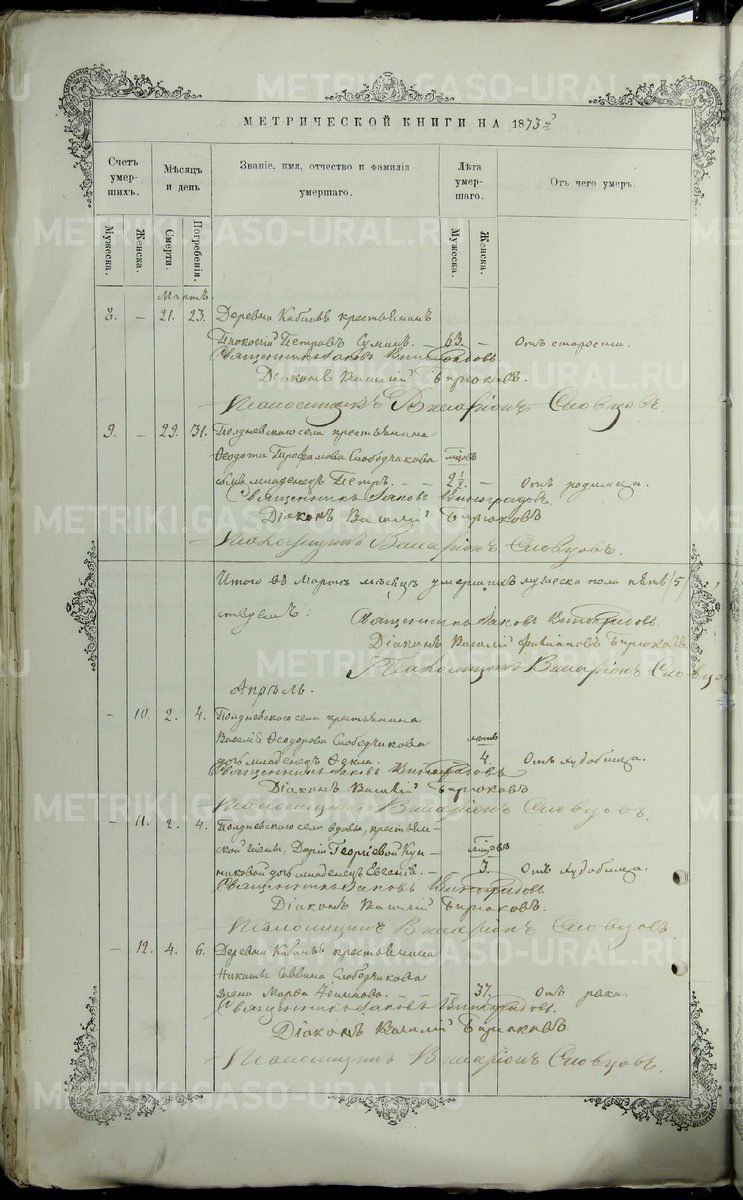 МЕТРИЧЕСКОЙ КНИГИ НА 1873 й
Счетъ умершихъ.
Мѣсяцъ и день
Званіе, имя, отчество и фамилія умершаго.
Лѣта умершаго.
Отъ чего умеръ.
Мужеска.
Женска.
Смерти.
Погребенія.
Мужеска.
Женска.
Мартъ
8. – 21. 23. Деревни Кабановъ крестьянинъ
Прокопій Петровъ Суминъ. – 63. – Отъ старости.
Священникъ Іаковъ Виноградовъ
Діаконъ Василій Бирюковъ.
Псаломщикъ Виларіонъ Словцовъ.
9. – 29. 31. Полдневскаго села крестьянина
Ѳеодота Трофимова Слободчикова мѣсяцовъ
сынъ младенецъ Петръ. – – 2 1/2 – Отъ родимца.
Священникъ Іаковъ Виноградовъ
Діаконъ Василій Бирюковъ
Псаломщикъ Виларіонъ Словцовъ.
Итого въ Мартѣ мѣсяцѣ умершихъ мужеска пола пять /5/
Священникъ Іаковъ Виноградовъ.
Діаконъ Василій Филипповъ Бирюковъ
Псаломщикъ Виларіонъ Словцовъ
Апрѣль.
– 10. 2. 4. Полдневскаго села крестьянина
Василія Ѳеодорова Слободчикова лѣтъ
дочь младенецъ Ѳекла. 4. Отъ худобища.
Священникъ Іаковъ Виноградовъ
Діаконъ Василій Бирюковъ.
Псаломщикъ Виларіонъ Словцовъ.
– 11. 2. 4. Полдневскаго села вдовы, крестьян-
ской жены, Даріи Георгіевой мѣсяцовъ
дочь младенецъ Евгенія. – 3. Отъ худобища.
Священникъ Іаковъ Виноградовъ.
Діаконъ Василій Бирюковъ.
Псаломщикъ Виларіонъ Словцовъ.
– 12. 4. 6. Деревни Кабановъ крестьянина
Никиты Саввина Слободчикова
жена Марѳа – – 37. Отъ рака.
Священникъ Іаковъ Виноградовъ.
Діаконъ Василій Бирюковъ.
Псаломщикъ Виларіонъ Словцовъ.
METRIKI.GASO-URAL.RU